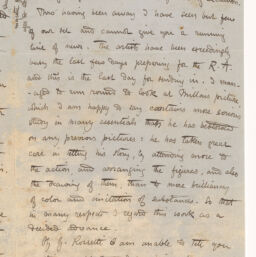 Thus having been away I have seen but few
of our set and cannot give you a running
line of news. The artists have been exceedingly
busy the last few days preparing for the R. A.
and this is the last day for sending in. I man-
aged to run round to look at pictures
which I am happy to say contains more serious
study in many essentials than he has
on any previous pictures: he has taken great
care in telling his story, by attending more to
the action and arranging the figures, and also
the drawing of them, than to mere brilliancy
of color and imitation of substances. So that
in many respects I regard this work as a
decided advance.
Of G. Rossetti I am unable to tell you